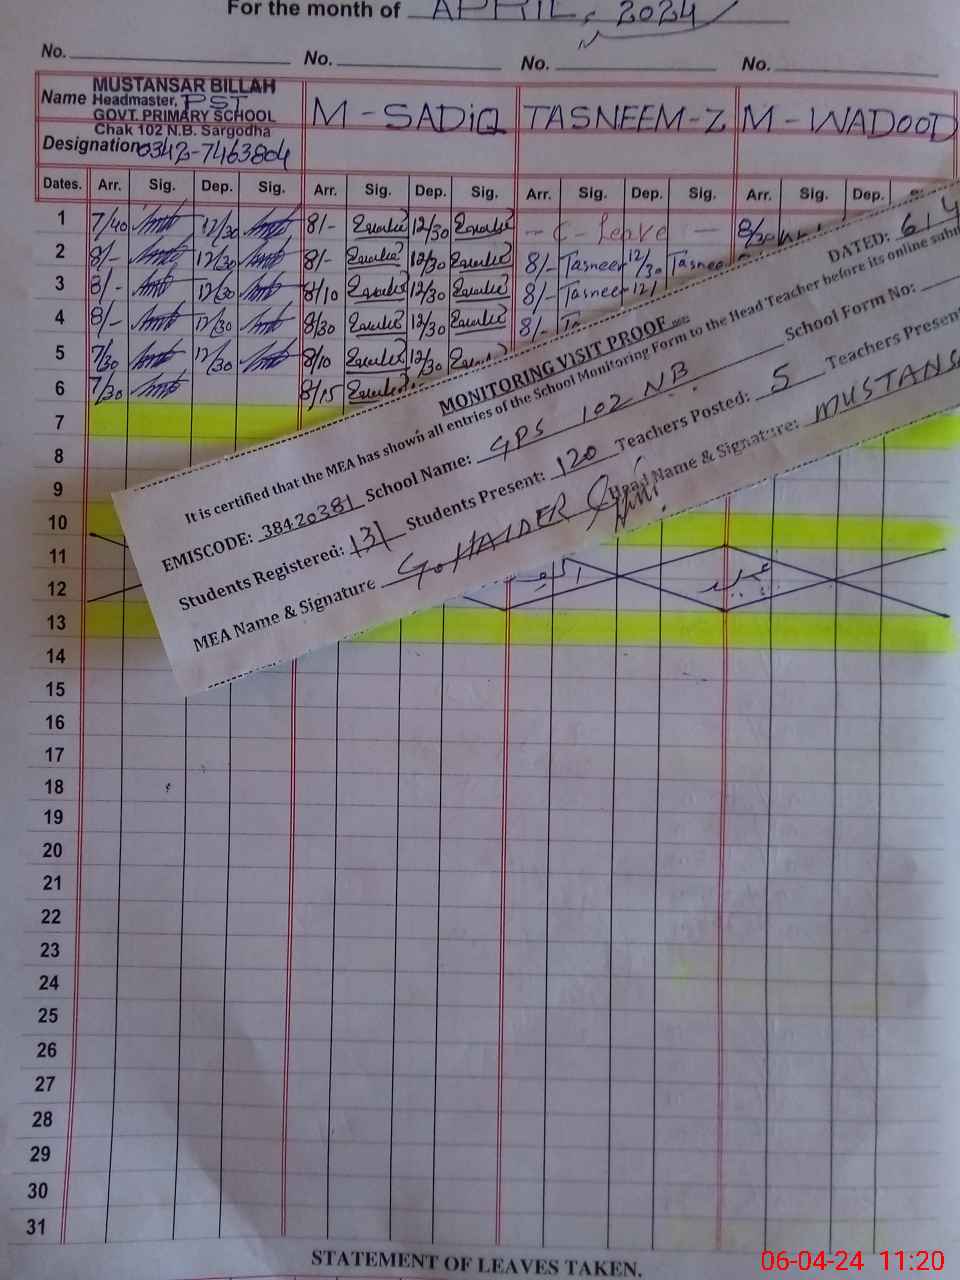 For the month of APRIL, 2024
No. No. No. No.
Name MUSTANSAR BILLAH
Headmaster, PST
GOVT. PRIMARY SCHOOL
Chak 102 N.B. Sargodha
Designation 0342-7463804
M - SADiQ TASNEEM-Z M - WADOOD
Dates. Arr. Sig. Dep. Sig. Arr. Sig. Dep. Sig. Arr. Sig. Dep. Sig. Arr. Sig. Dep.
1 7/40 12/30 8/- 12/30 - C - Leave -
2 8/- 12/30 8/- 12/30 8/- Tasneem 12/30 Tasnee
3 8/- 12/30 8/10 12/30 8/- Tasneem 12/
4 8/- 12/30 8/30 12/30 8/-
5 7/30 12/30 8/10 12/30
6 7/30 8/15
7
8
9
10
11
12
13
14
15
16
17
18
19
20
21
22
23
24
25
26
27
28
29
30
31
DATED: 6/4
MONITORING VISIT PROOF
It is certified that the MEA has shown all entries of the School Monitoring Form to the Head Teacher before its online
EMISCODE: 38420381 School Name: GPS 102 NB School Form No:
Students Registered: 131 Students Present: 120 Teachers Posted: 5 Teachers Present
MEA Name & Signature G. HAIDER Head Name & Signature: MUSTANSA
STATEMENT OF LEAVES TAKEN.
06-04-24 11:20